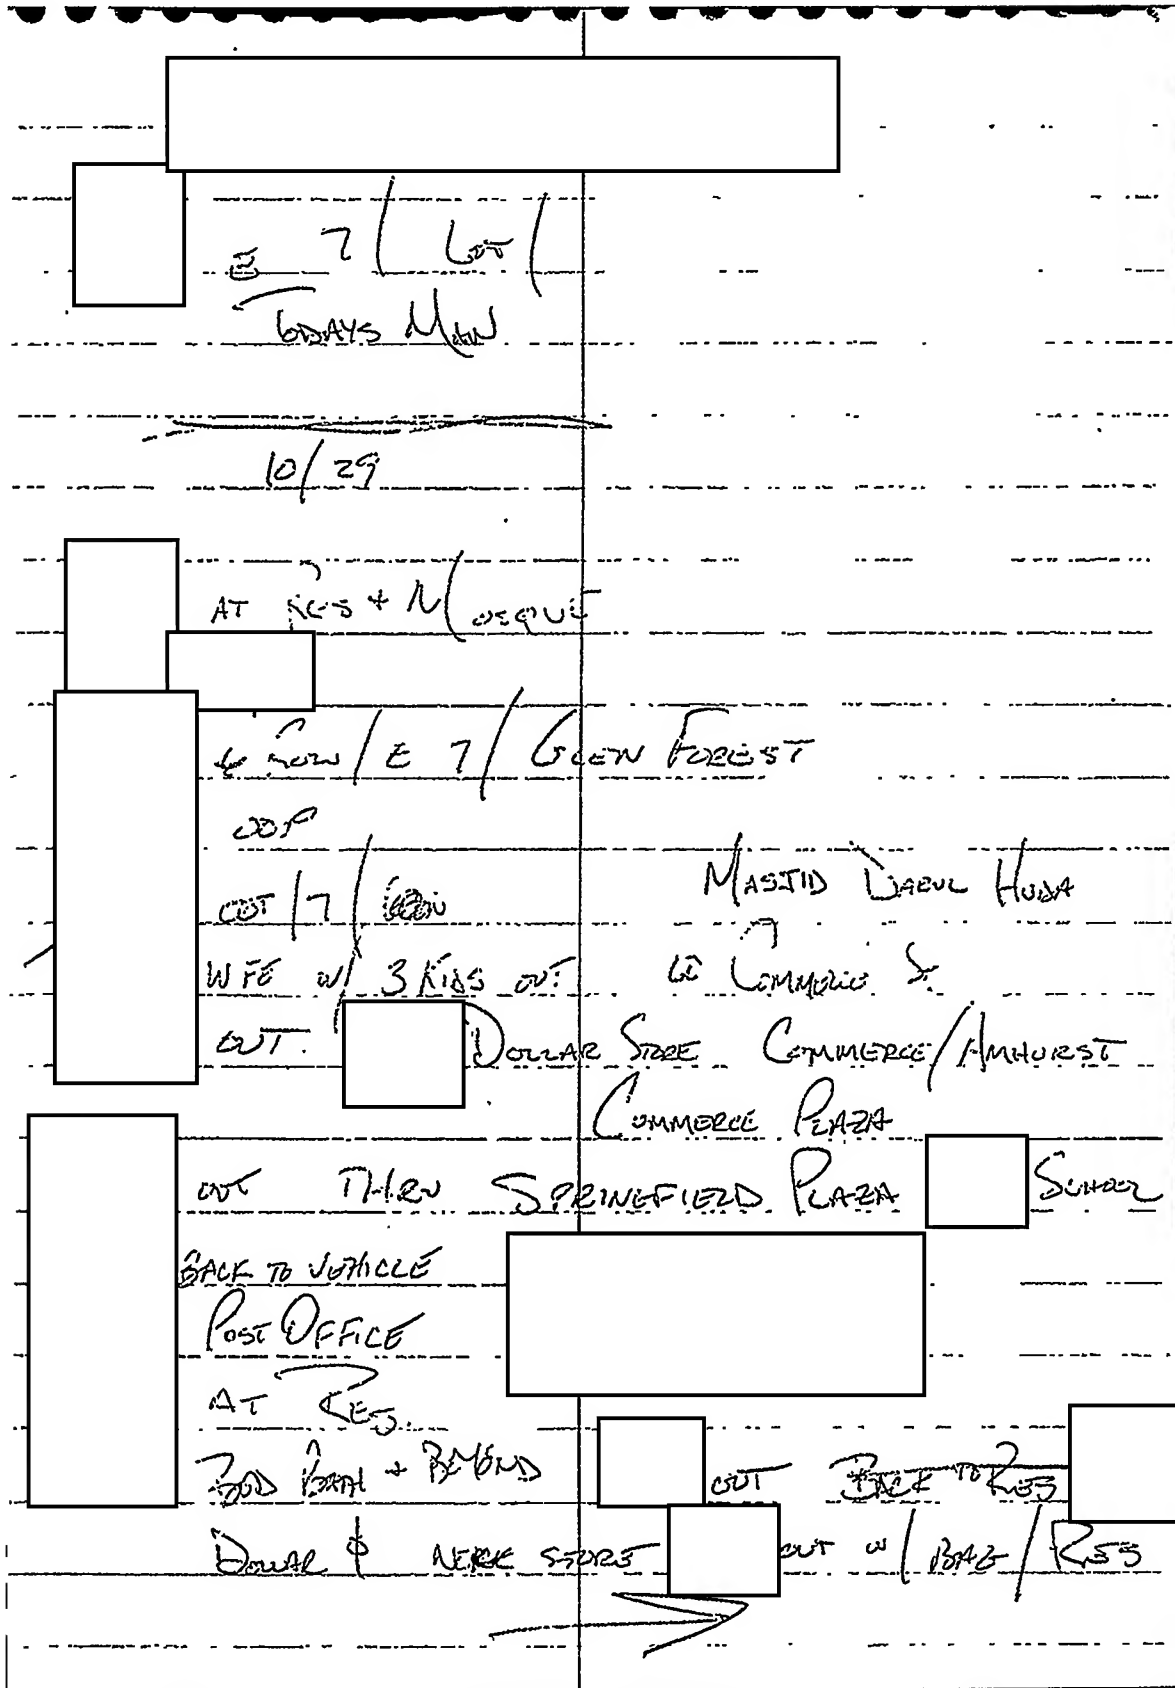 E 7/ LOT/
6 DAYS MAN
10/29
AT RES + MOSQUE
/ E 7/ GLEN FOREST
OOP
OUT /7/
MASJID DARUL HUDA
WFE w/ 3 KIDS OUT
COMMERCE St.
OUT. DOLLAR STORE COMMERCE/AMHURST
COMMERCE PLAZA
OUT THRU SPRINGFIELD PLAZA SCHOOL
BACK TO VEHICLE
POST OFFICE
AT RES.
BED BATH + BEYOND OUT BACK TO RES
DOLLAR $ STORE OUT w/ BAG/ RES